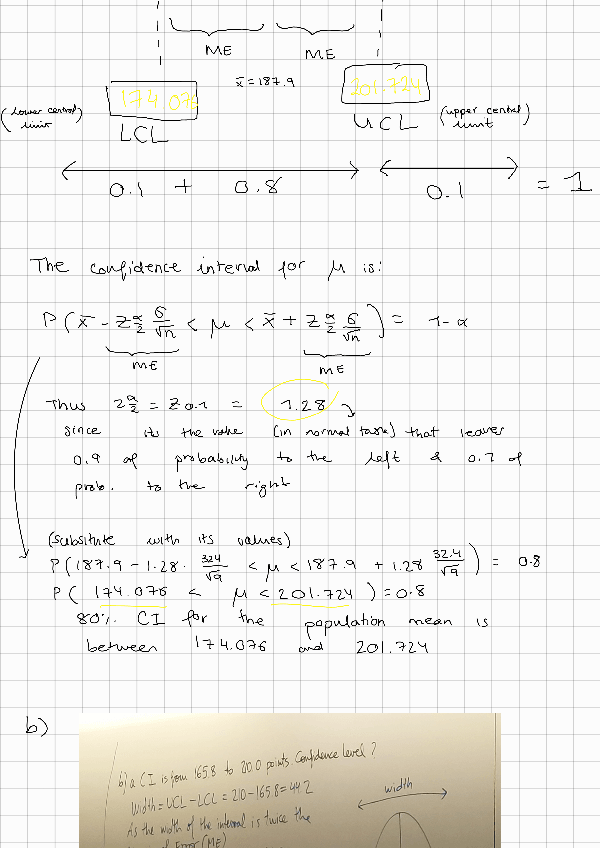 ME ME
x̄ = 187.9
174.073 201.724
(lower central limit) LCL UCL (upper central limit)
0.1 + 0.8 0.1 = 1
The confidence interval for μ is:
P(x̄ - Z α/2 σ/√n < μ < x̄ + Z α/2 σ/√n) = 1-α
ME ME
Thus Z α/2 = Z 0.1 = 1.28
since its the value (in normal table) that leaves
0.9 of probability to the left & 0.1 of
prob. to the right
(substitute with its values)
P(187.9 - 1.28. 324/√9 < μ < 187.9 + 1.28 32.4/√9) = 0.8
P( 174.076 < μ < 201.724 ) = 0.8
80% CI for the population mean is
between 174.076 and 201.724
b)
b) a CI is from 165.8 to 210.0 points. Confidence level?
Width = UCL - LCL = 210 - 165.8 = 44.2
width
As the width of the interval is twice the
of Error (ME)